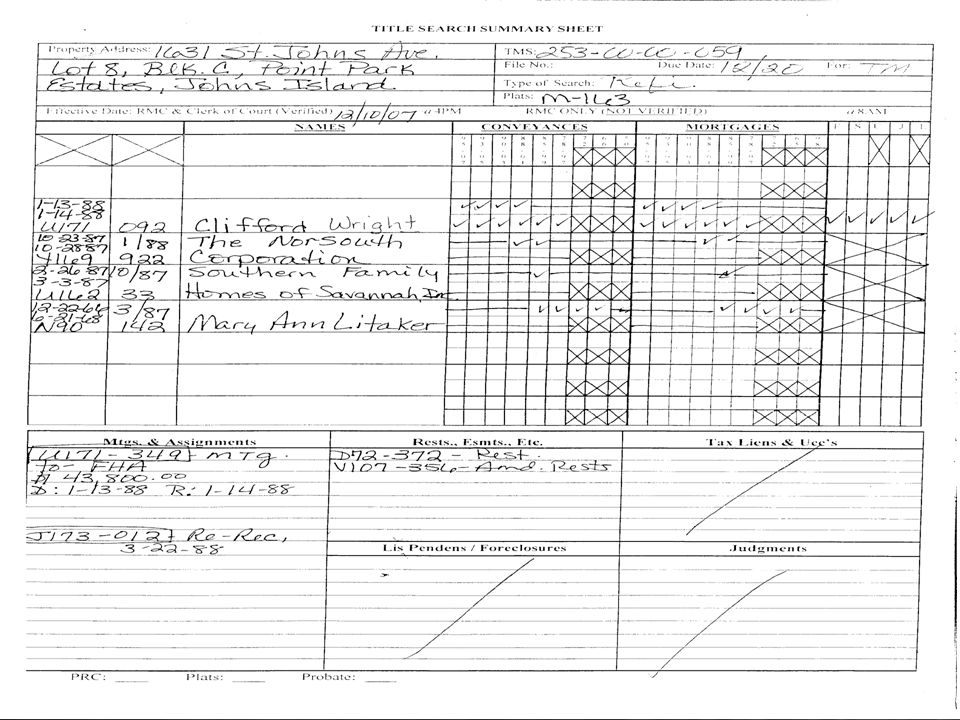 TITLE SEARCH SUMMARY SHEET
Property Address: 1631 St. Johns Ave.
Lot 8, Blk. C, Point Park
Estates, Johns Island
TMS: 253-00-00-059
File No.: Due Date: 12/20 For: TM
Type of Search: Refi.
Plats: M-163
Effective Date: RMC & Clerk of Court (Verified) 12/10/07 @ 4PM RMC ONLY (NOT VERIFIED) @ 8AM
NAMES CONVEYANCES MORTGAGES F S U J T
1-13-88
1-14-88
U171 092 Clifford Wright
10-23-87 1/88 The Norsouth
10-28-87
Y169 922 Corporation
2-26-87 10/87 Southern Family
3-3-87
U162 33 Homes of Savannah, Inc.
12-22-66 3/87
6-21-68
N90 142 Mary Ann Litaker
Mtgs. & Assignments
U171-349 } MTG.
to- FHA
$ 43,800.00
D: 1-13-88 R: 1-14-88
J173-012 } Re-Rec,
3-22-88
Rests., Esmts., Etc.
D72-372 - Rest.
V107-356 - Amd. Rests
Tax Liens & Ucc's
Lis Pendens / Foreclosures
Judgments
PRC: ____ Plats: ____ Probate: ____